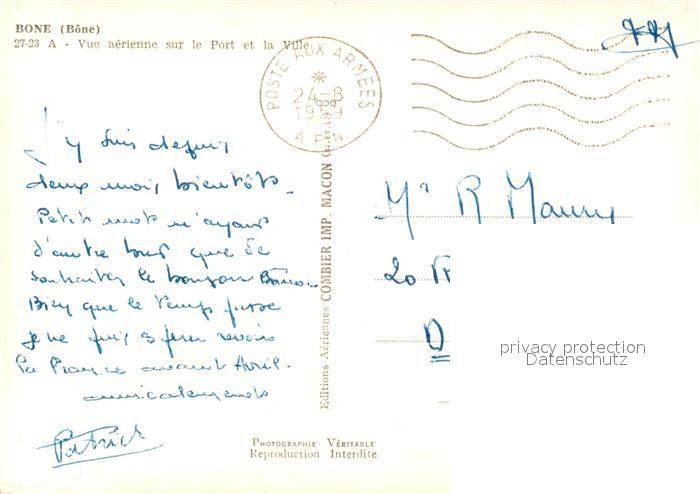 BONE (Bône)
27-23 A - Vue aérienne sur le Port et la Ville
POSTE AUX ARMEES
24-8
A.F.N.
FM
J'y suis depuis
deux mois bientôt.
Petit mot n'ayant
d'autre but que de
souhaiter le bonjour
Bien que le temps passe
je ne puis espérer revoir
la France avant Avril.
amicalement
Patrick
Editions Aériennes COMBIER IMP. MACON
Mr R
20
D
privacy protection
Datenschutz
PHOTOGRAPHIE VÉRITABLE
Reproduction Interdite